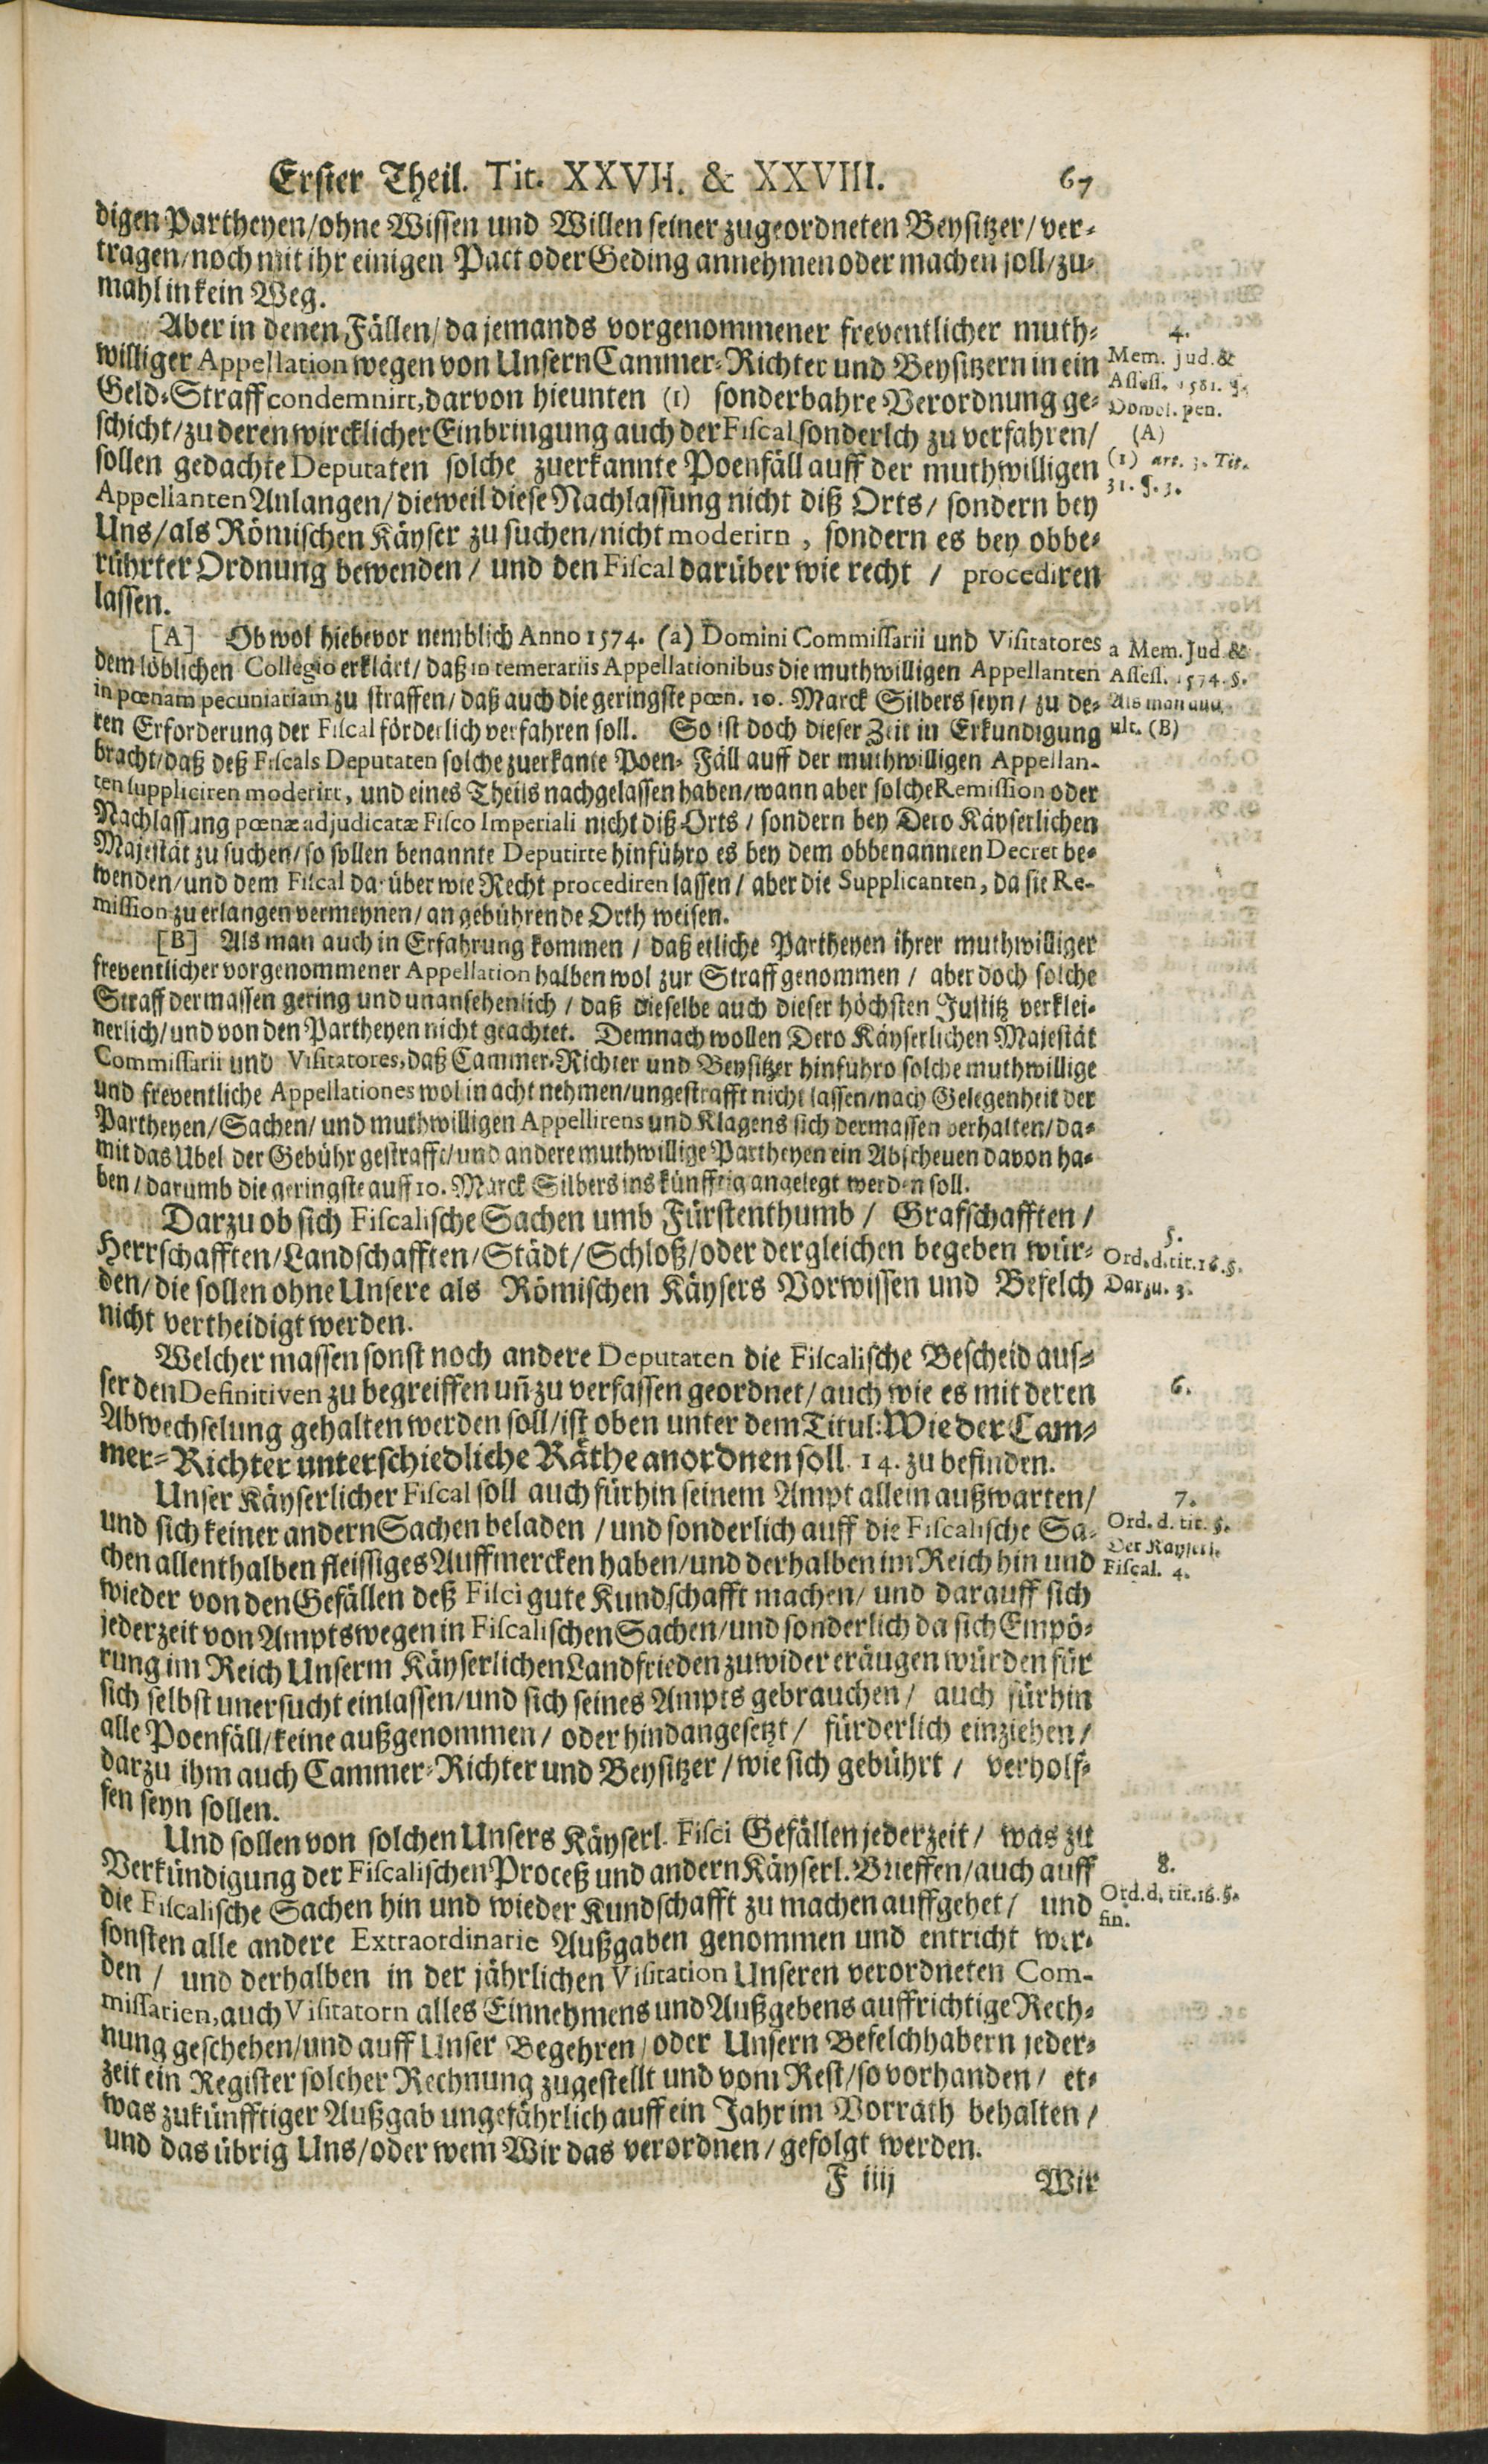 Erster Theil. Tit. XXVII. & XXVIII. 67
digen Partheyen/ohne Wissen und Willen seiner zugeordneten Beysitzer/ver-
tragen/noch mit ihr einigen Pact oder Geding annehmen oder machen soll/zu-
mahl in kein Weg.
Aber in denen Fällen/da jemands vorgenommener freventlicher muth-
williger Appellation wegen von Unsern Cammer-Richter und Beysitzern in ein
Geld-Straff condemnirt, darvon hieunten (1) sonderbahre Verordnung ge-
schicht/zu deren wircklicher Einbringung auch der Fiscal sonderlch zu verfahren/
sollen gedachte Deputaten solche zuerkannte Poenfäll auff der muthwilligen
Appellanten Anlangen/dieweil diese Nachlassung nicht diß Orts/sondern bey
Uns/als Römischen Käyser zu suchen/nicht moderirn, sondern es bey obbe-
rührter Ordnung bewenden/und den Fiscal darüber wie recht/procediren
lassen.
4.
Mem. Jud. &
Assess. 1581. §.
Obwol. pen.
(A)
(1) art. 3. Tit.
31. §. 3.
[A] Ob wol hiebevor nemblich Anno 1574. (a) Domini Commissarii und Visitatores
dem löblichen Collegio erklärt/daß in temerariis Appellationibus die muthwilligen Appellanten
in pœnam pecuniariam zu straffen/daß auch die geringste pœn. 10. Marck Silbers seyn/zu de-
ren Erforderung der Fiscal förderlich verfahren soll. So ist doch dieser Zeit in Erkundigung
bracht/daß deß Fiscals Deputaten solche zuerkante Poen-Fäll auff der muthwilligen Appellan-
ten suppliciren moderirt, und eines Theils nachgelassen haben/wann aber solche Remission oder
Nachlassung pœnæ adjudicatæ Fisco Imperiali nicht diß Orts/sondern bey Dero Käyserlichen
Majestät zu suchen/so sollen benannte Deputirte hinführo es bey dem obbenannten Decret be-
wenden/und dem Fiscal darüber wie Recht procediren lassen/aber die Supplicanten, da sie Re-
mission zu erlangen vermeynen/an gebührende Orth weisen.
a Mem. Jud &
Assess. 1574. §.
Als man auch,
ult. (B)
[B] Als man auch in Erfahrung kommen/daß etliche Partheyen ihrer muthwilliger
freventlicher vorgenommener Appellation halben wol zur Straff genommen/aber doch solche
Straff dermassen gering und unansehenlich/daß dieselbe auch dieser höchsten Justitz verklei-
nerlich/und von den Partheyen nicht geachtet. Demnach wollen Dero Käyserlichen Majestät
Commissarii und Visitatores, daß Cammer-Richter und Beysitzer hinführo solche muthwillige
und freventliche Appellationes wol in acht nehmen/ungestrafft nicht lassen/nach Gelegenheit der
Partheyen/Sachen/und muthwilligen Appellirens und Klagens sich dermassen verhalten/da-
mit das Ubel der Gebühr gestrafft/und andere muthwillige Partheyen ein Abscheuen davon ha-
ben/darumb die geringste auff 10. Marck Silbers ins künfftig angelegt werden soll.
Darzu ob sich Fiscalische Sachen umb Fürstenthumb/Grafschafften/
Herrschafften/Landschafften/Städt/Schloß/oder dergleichen begeben wür-
den/die sollen ohne Unsere als Römischen Käysers Vorwissen und Befelch
nicht vertheidigt werden.
5.
Ord. d. tit. 16. §.
Darzu. 3.
Welcher massen sonst noch andere Deputaten die Fiscalische Bescheid aus-
ser den Definitiven zu begreiffen uñ zu verfassen geordnet/auch wie es mit deren
Abwechselung gehalten werden soll/ist oben unter dem Titul: Wie der Cam-
mer-Richter unterschiedliche Räthe anordnen soll. 14. zu befinden.
6.
Unser Käyserlicher Fiscal soll auch fürhin seinem Ampt allein außwarten/
und sich keiner andern Sachen beladen/und sonderlich auff die Fiscalische Sa-
chen allenthalben fleissiges Auffmercken haben/und derhalben im Reich hin und
wieder von den Gefällen deß Fisci gute Kundschafft machen/und darauff sich
jederzeit von Ampts wegen in Fiscalischen Sachen/und sonderlich da sich Empö-
rung im Reich Unserm Käyserlichen Landfrieden zuwider eräugen würden für
sich selbst unersucht einlassen/und sich seines Ampts gebrauchen/auch fürhin
alle Poenfäll/keine außgenommen/oder hindangesetzt/fürderlich einziehen/
darzu ihm auch Cammer-Richter und Beysitzer/wie sich gebührt/verholf-
fen seyn sollen.
7.
Ord. d. tit. §.
Der Kayserl.
Fiscal. 4.
Und sollen von solchen Unsers Käyserl. Fisci Gefällen jederzeit/was zu
Verkündigung der Fiscalischen Proceß und andern Käyserl. Brieffen/auch auff
die Fiscalische Sachen hin und wieder Kundschafft zu machen auffgehet/und
sonsten alle andere Extraordinarie Außgaben genommen und entricht wer-
den/und derhalben in der jährlichen Visitation Unseren verordneten Com-
missarien, auch Visitatorn alles Einnehmens und Außgebens auffrichtige Rech-
nung geschehen/und auff Unser Begehren/oder Unsern Befelchhabern jeder-
zeit ein Register solcher Rechnung zugestellt und vom Rest/so vorhanden/et-
was zukünfftiger Außgab ungefährlich auff ein Jahr im Vorrath behalten/
und das übrig Uns/oder wem Wir das verordnen/gefolgt werden.
8.
Ord. d. tit. 16. §.
fin.
F iiij Wir